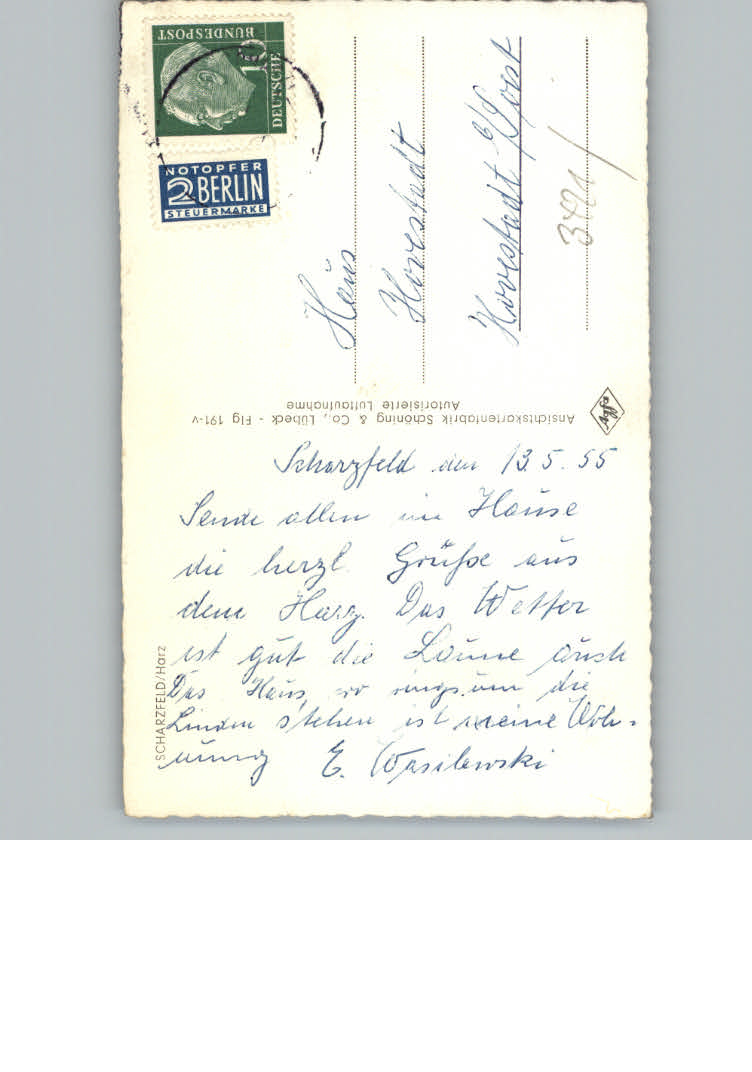 DEUTSCHE
BUNDESPOST
10
NOTOPFER
2 BERLIN
STEUERMARKE
Haus
Hovestadt
Hovestadt
3421
Ansichtskartenfabrik Schöning & Co., Lübeck - Flg 191-v
Autorisierte Luftaufnahme
Agfa
SCHARZFELD/Harz
Scharzfeld den 13.5.55
Sende allen im Hause
die herzl. Grüße aus
dem Harz. Das Wetter
ist gut die Laune auch
Das Haus, wo rings um die
Linden stehen ist meine Woh-
nung E. Wasilewski